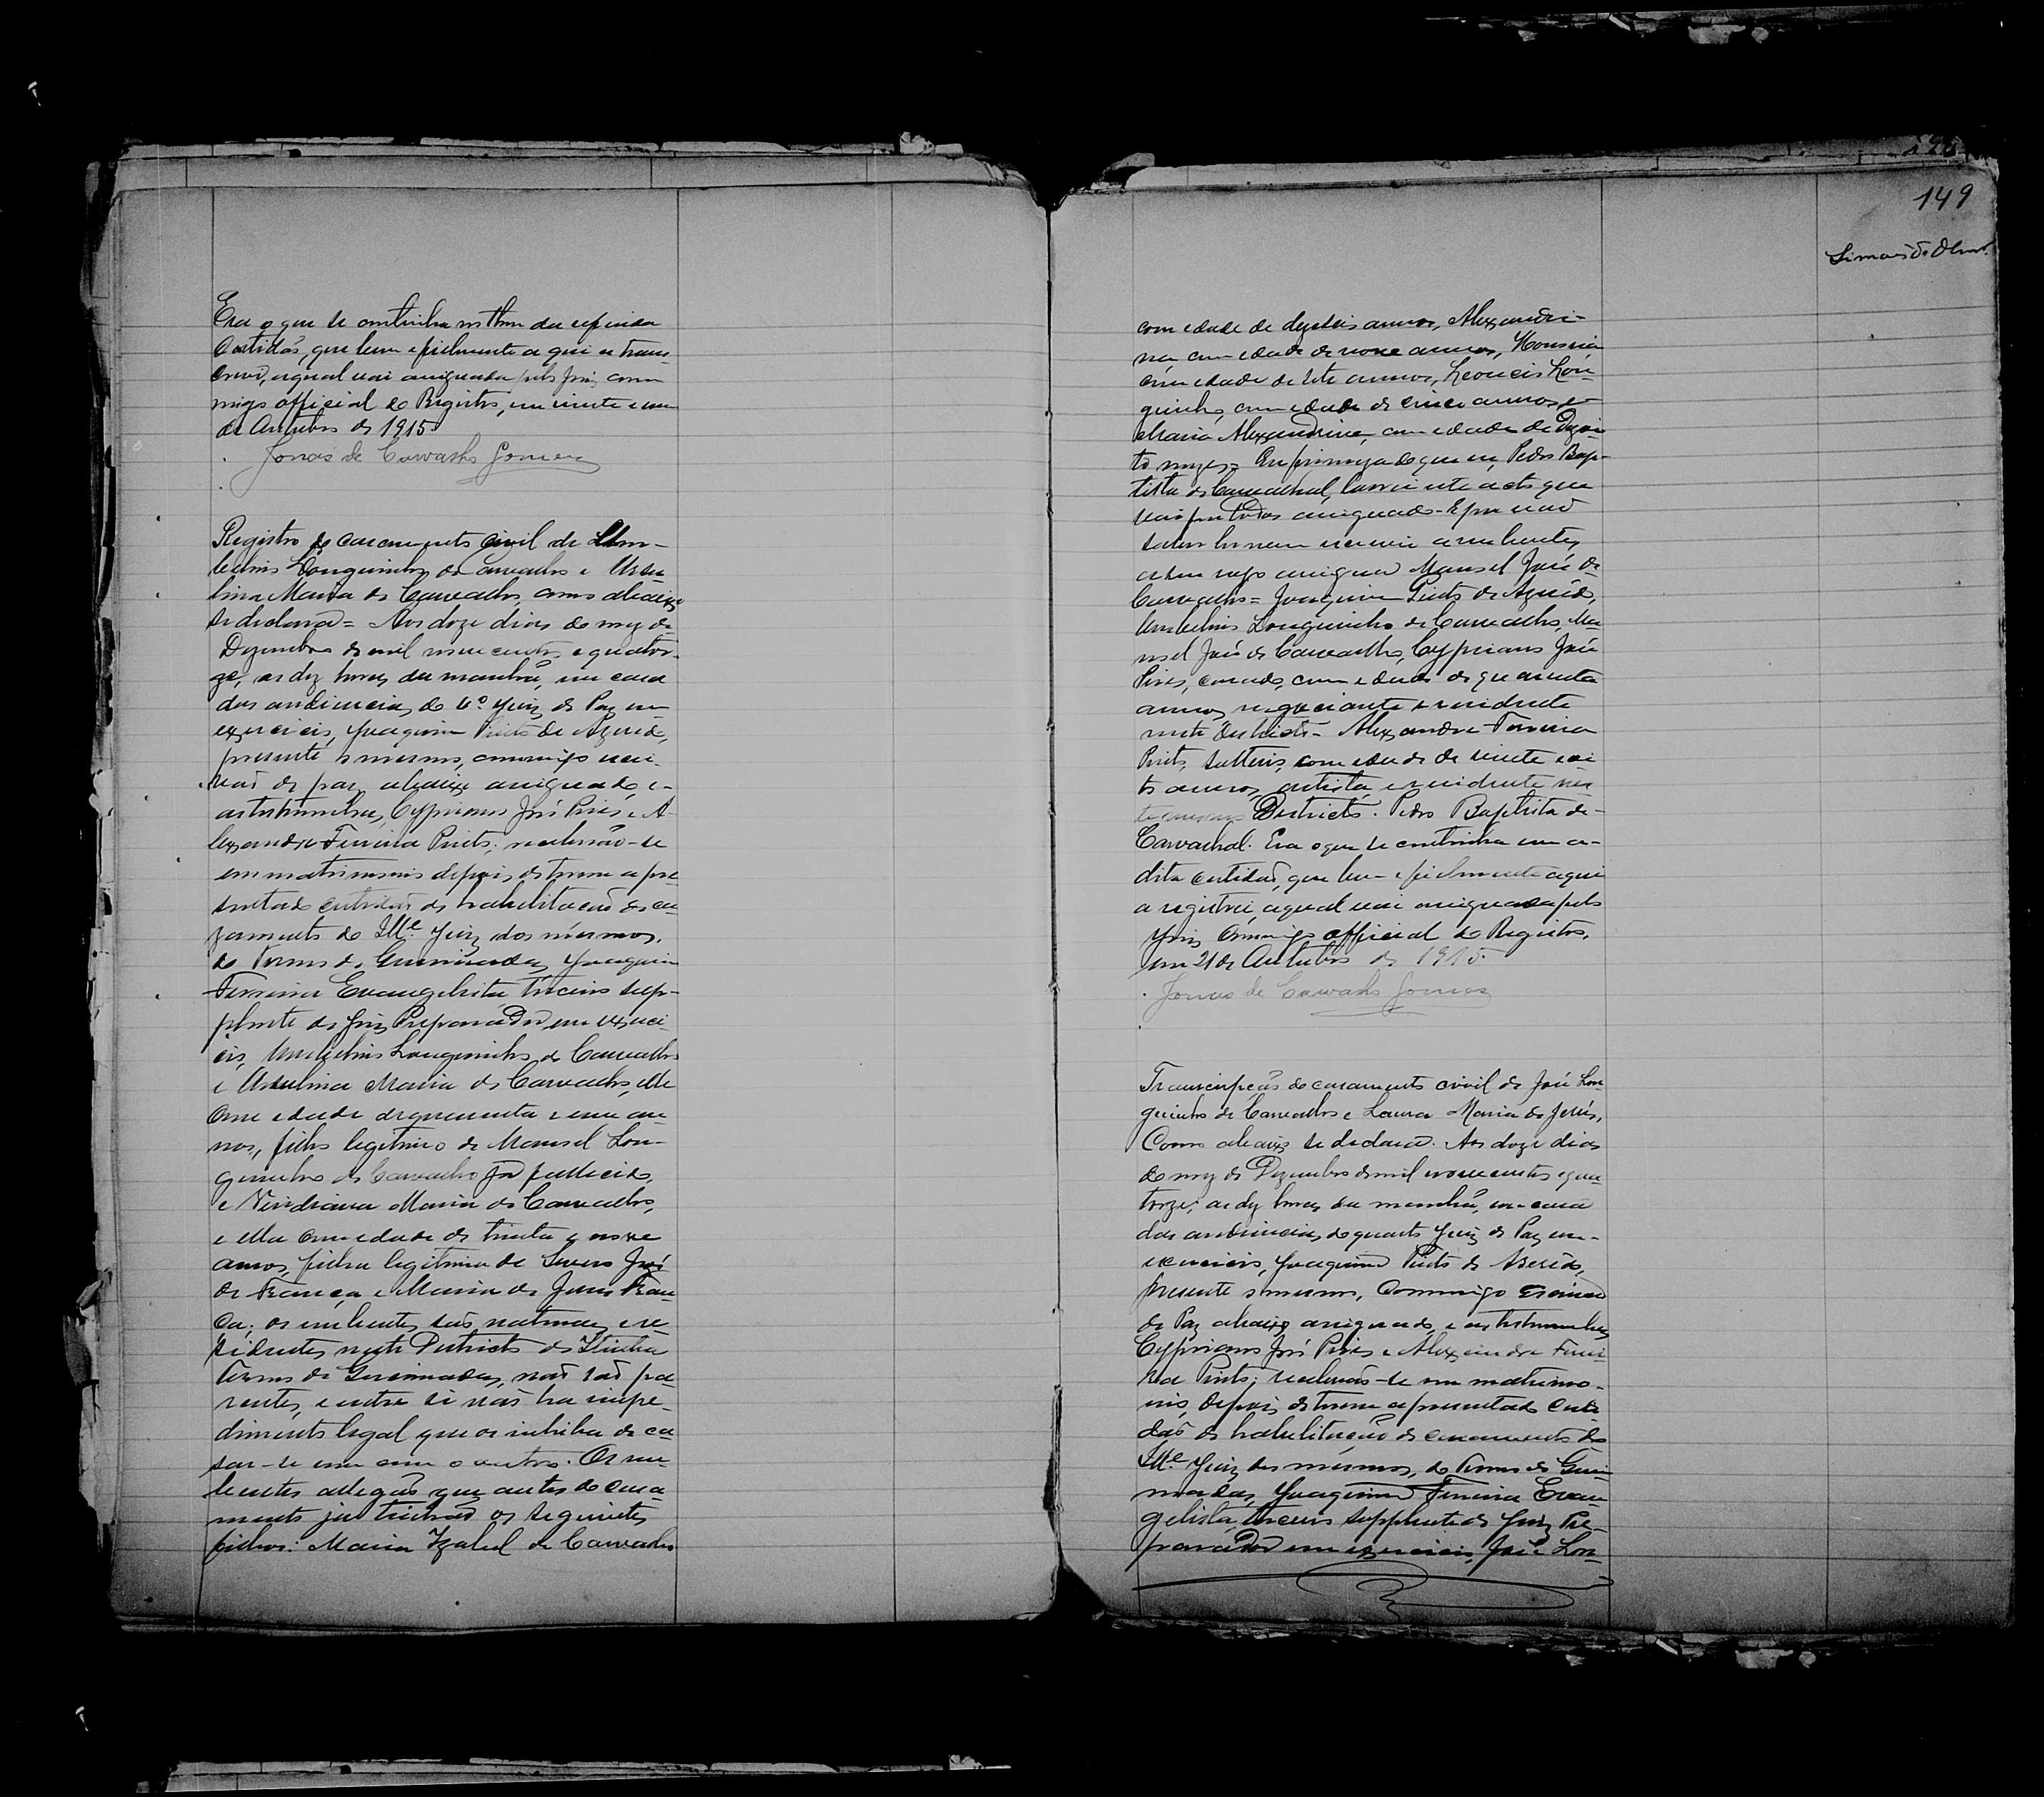 Era o que se continha no thor da referida
Certidão, que bem e fielmente a qui a trans
crevi, a qual vai assignada pelo Juiz com
migo official do Registro, em vinte e um
de Outubro de 1915
Jonas de Carvalho Gomes
Registro do casamento civil de Um-
belino Longuinho de Carvalho e Ursu-
lina Maria de Carvalho, como abaixo
se declara = Aos doze dias do mez de
Dezembro de mil nove centos e quator-
ze, as dez horas da manhã, em casa
das audiencias do 4º Juiz de Paz em
exercicio, Joaquim Pinto de Azerêdo,
presente o mesmo, commigo escri-
vão de paz abaixo assignado, e
as testemunhas, Cypriano José Pires e A-
lexandre Ferreira Pinto; receberão-se
em matrimonio depois de terem apre-
sentado certidão de habilitação de ca-
zamento do Ille Juiz dos mesmos,
do Termo de Gurimadas, Joaquim
Ferreira Evangelista, terceiro sup-
plente do Juiz Preparador, em exerci-
cio, Umbelino Longuinho de Carvalho
e Ursulina Maria de Carvalho, elle
com edade de quarenta e um an-
nos, filho legitimo de Manoel Lon-
guinho de Carvalho já fallecido,
e Veridiana Maria de Carvalho,
e ella com edade de trinta e nove
annos, filha legitima de Severo José
de França e Maria de Jesus Fran-
ça; os nubentes são naturaes e re-
sidentes neste Districto de Itiuba
Termo de Gurimadas, não são pa-
rentes, e entre si não ha impe-
dimento legal que os inhiba de ca-
sar-se um com o outro. Os nu-
bentes allegão que antes do casa-
mento já tinhão os seguintes
filhos: Maria Izabel de Carvalho
149
com edade de dezeseis annos, Alexandri-
na com edade de nove annos,
com edade de sete annos, Leoncio Lon-
guinho, com edade de cinco annos e
Maria Alexandrina, com edade de dezoi-
to mezes. Em firmeza do que eu, Pedro Bap-
tista de Carvalhal, lavrei este acto que
vai por todos assignado. E por não
saber ler nem escrever a nubente,
a seu rogo assigna Manoel José de
Carvalho = Joaquim Pinto de Azerêdo,
Umbelino Longuinho de Carvalho, Ma-
noel José de Carvalho, Cypriano José
Pires, casado, com edade de quarenta
annos, negociante e residente
neste Districto - Alexandre Ferreira
Pinto, solteiro, com edade de vinte e oi-
to annos, artista, e residente nes
te mesmo Districto. Pedro Baptista de
Carvalhal. Era o que se continha em a
dita certidão, que bem e fielmente aqui
a registrei, a qual vai assignada pelo
Juiz commigo official do Registro,
em 21 de Outubro de 1915.
Jonas de Carvalho Gomes
Transcripção do casamento civil de José Lon
guinho de Carvalho e Laura Maria de Jesús,
Como abaixo se declara. Aos doze dias
do mez de Dezembro de mil nove centos e qua
torze; as dez horas da manhã, em casa
das audiencias do quarto Juiz de Paz em
exercicio, Joaquim Pinto de Azerêdo,
presente o mesmo, Commigo Escrivão
de Paz abaixo assignado, e as testemunhas
Cypriano José Pires e Alexandre Ferrei-
ra Pinto; receberão-se em matrimo-
nio, depois de terem apresentado certi
dão de habilitação de casamento do
Ille Juiz dos mesmos, do Termo de Guri
madas, Joaquim Ferreira Evan
gelista, terceiro supplente do Juiz Pre-
parador em exercicio, José Lon-